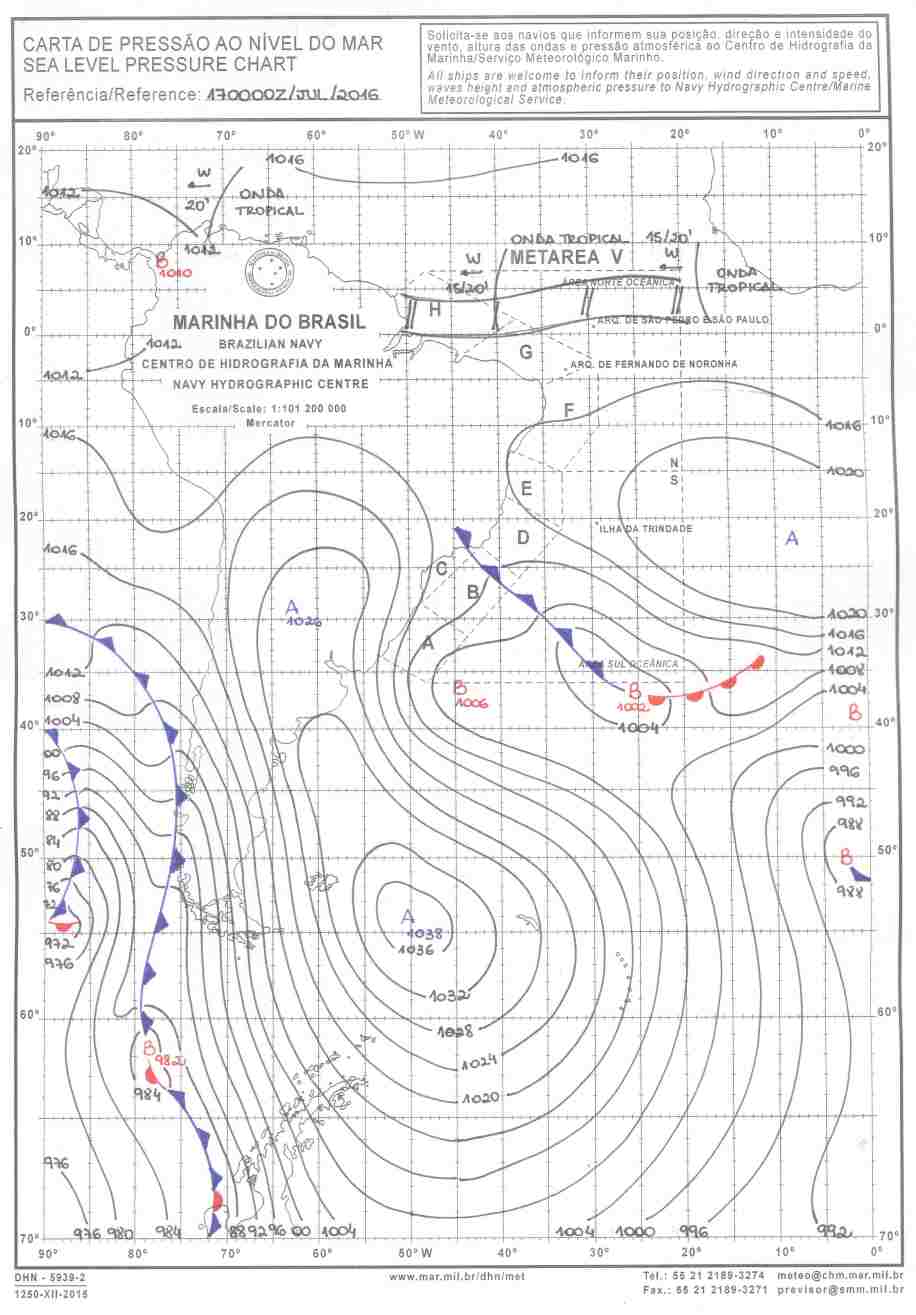 CARTA DE PRESSÃO AO NÍVEL DO MAR
SEA LEVEL PRESSURE CHART
Referência/Reference: 170000Z/JUL/2016
Solicita-se aos navios que informem sua posição, direção e intensidade do
vento, altura das ondas e pressão atmosférica ao Centro de Hidrografia da
Marinha/Serviço Meteorológico Marinho.
All ships are welcome to inform their position, wind direction and speed,
waves height and atmospheric pressure to Navy Hydrographic Centre/Marine
Meteorological Service.
90° 80° 70° 60° 50°W 40° 30° 20° 10° 0°
20° 20°
1016 1016
W
1012 ONDA
20' TROPICAL
10° 1012 ONDA TROPICAL 15/20' 10°
B W METAREA V W ONDA
1010 15/20' ÁREA NORTE OCEÂNICA TROPICAL
H
MARINHA DO BRASIL ARQ. DE SÃO PEDRO E SÃO PAULO
0° 0°
BRAZILIAN NAVY
1012 G
CENTRO DE HIDROGRAFIA DA MARINHA ARQ. DE FERNANDO DE NORONHA
1012
NAVY HYDROGRAPHIC CENTRE
Escala/Scale: 1:101 200 000 F
Mercator
10° 10°
1016 1016
N 1020
S
E
20° 20°
ILHA DA TRINDADE
D A
1016
C
B
A
1026
30° 1020 30°
1016
A 1012
ÁREA SUL OCEÂNICA 1008
1012 B B 1004
1008 1006 1002 B
1004 1004
40° 40°
00 1000
96 996
92 992
88 988
84
50° B 50°
80
76 988
72 A
1038
972 1036
976
1032
60° 1028 60°
B
982 1024
984
1020
976
976 980 984 88 92 96 00 1004 1004 1000 996 992
70° 70°
90° 80° 70° 60° 50°W 40° 30° 20° 10° 0°
DHN - 5939-2 www.mar.mil.br/dhn/met Tel.: 55 21 2189-3274 meteo@chm.mar.mil.br
1250-XII-2015 Fax.: 55 21 2189-3271 previsor@smm.mil.br